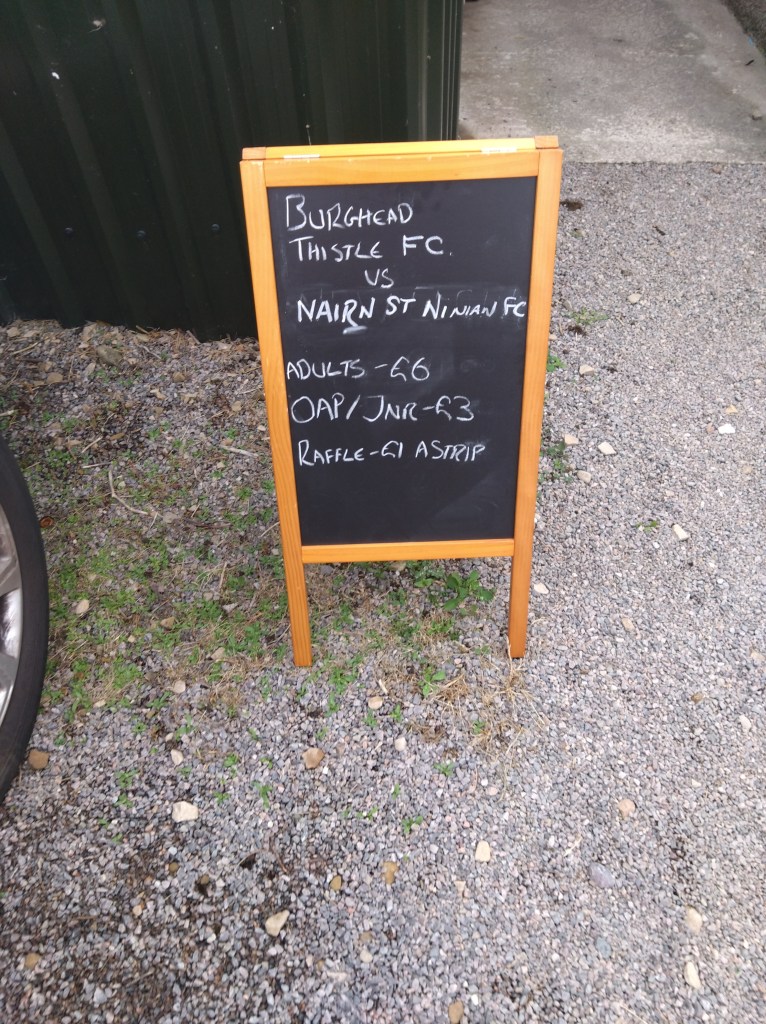 BURGHEAD
THISTLE FC.
VS
NAIRN ST NINIAN FC
ADULTS - £6
OAP/JNR - £3
RAFFLE - £1 A STRIP